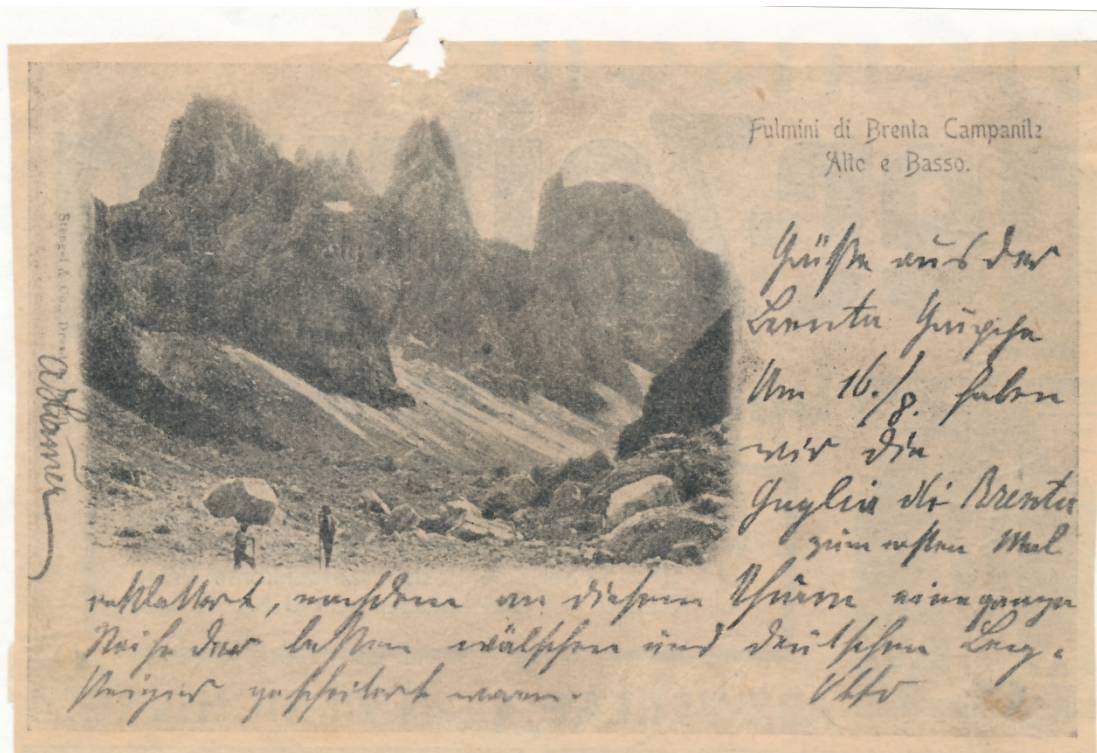 Fulmini di Brenta Campanile
Alto e Basso.
Stengel & Co., Dresd
Grüße aus der
Brenta Gruppe
Am 16./8. haben
wir die
Guglia di Brenta
zum ersten Mal
erklettert, nachdem an diesem Thurm eine ganze
Reihe der besten wälschen und deutschen Berg-
steiger gescheitert waren.
Otto